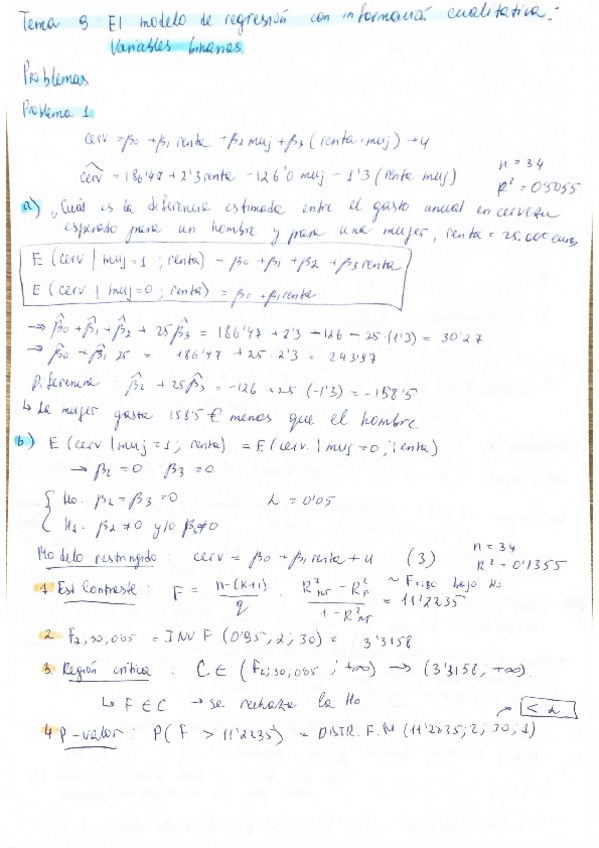 Tema 9 El modelo de regresión con información cualitativa:
Variables binarias.
Problemas
Problema 1.
cerv = β0 + β1 renta + β2 muj + β3 (renta·muj) + u
cerv^ = 186'47 + 2'3 renta - 126'0 muj - 1'3 (renta·muj)
n = 34
R² = 0'5055
a) ¿Cuál es la diferencia estimada entre el gasto anual en cerveza
esperado para un hombre y para una mujer, renta = 25.000 euros
E (cerv | muj=1 ; renta) = β0 + β1 + β2 + β3 renta
E (cerv | muj=0 ; renta) = β0 + β1 renta
→ β̂0 + β̂1 + β̂2 + 25 β̂3 = 186'47 + 2'3 - 126 - 25·(1'3) = 30'27
→ β̂0 + β̂1 25 = 186'47 + 25·2'3 = 243'97
Diferencia : β̂2 + 25β̂3 = -126 + 25 (-1'3) = -158'5
↳ La mujer gasta 158'5 € menos que el hombre
b) E (cerv | muj=1 ; renta) = E (cerv. | muj=0 ; renta)
→ β2 = 0 β3 = 0
{ H0. β2 = β3 = 0 α = 0'05
H1. β2 ≠ 0 y/o β3 ≠ 0
Modelo restringido : cerv = β0 + β1 renta + u (3)
n = 34
R² = 0'1355
1. Est Contraste : F = n-(k+1) / q · R²nr - R²r / 1 - R²nr = 11'2235 ~ F2,30 bajo H0
2. F2,30,0'05 = INV F (0'95, 2 ; 30) = 3'3158
3. Región crítica : C ∈ (F2;30;0'05 ; +∞) → (3'3158, +∞).
↳ F ∈ C → se rechaza la H0
4. P-valor : P( F > 11'2235) = DISTR. F. N (11'2235; 2; 30; 1) → < α